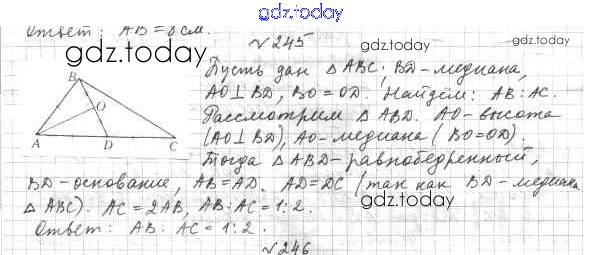 gdz.today
Ответ: AB = 8 см.
gdz.today
№ 245
gdz.today
gdz.today
Пусть дан △ ABC; BD - медиана,
AO ⊥ BD, BO = OD. Найдём: AB : AC.
Рассмотрим △ ABD. AO - высота
(AO ⊥ BD), AO - медиана (BO = OD).
Тогда △ ABD - равнобедренный,
BD - основание, AB = AD. AD = DC (так как BD - медиана
△ ABC). AC = 2AB, AB : AC = 1 : 2.
Ответ: AB : AC = 1 : 2.
B
O
A
D
C
gdz.today
gdz.today
gdz.today
№ 246